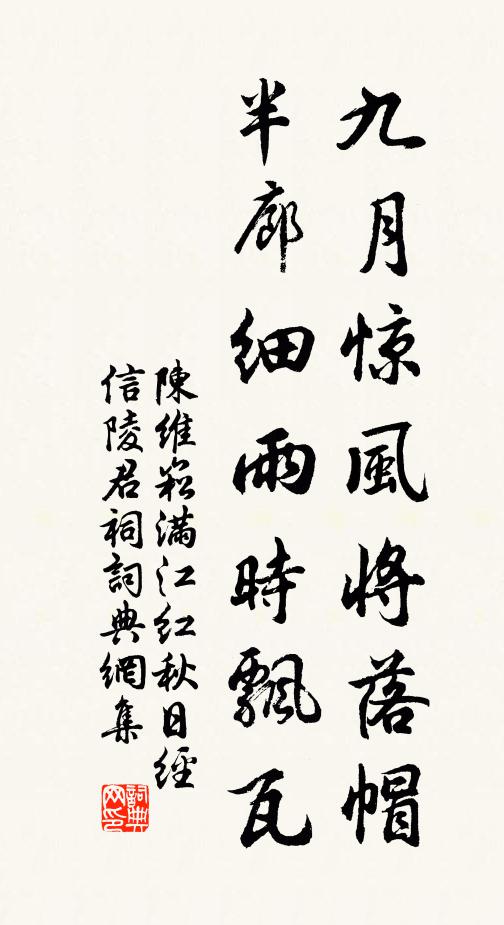 九月惊風將落帽
半廊細雨時飄瓦
陳維崧滿江紅秋日經
信陵君祠詞典網集
詞典
网印